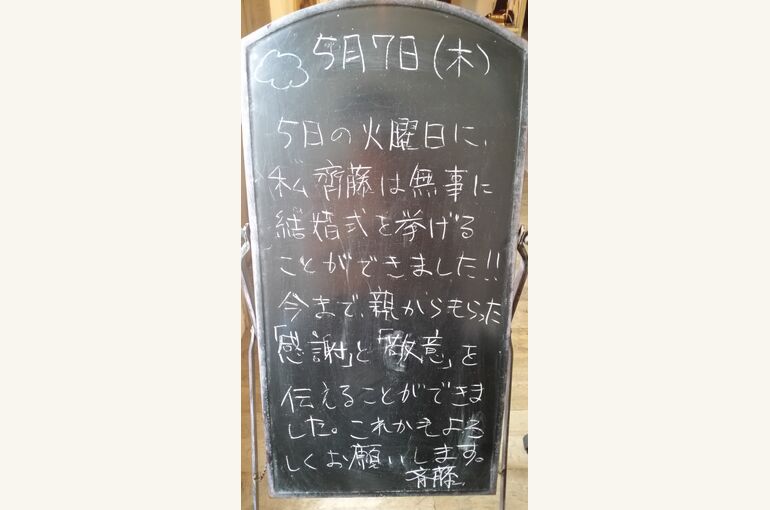 5月7日(木)
5日の火曜日に、
私齊藤は無事に
結婚式を挙げる
ことができました!!
今まで、親からもらった
「感謝」と「敬意」を
伝えることができま
した。これからもよろ
しくお願いします。
斉藤